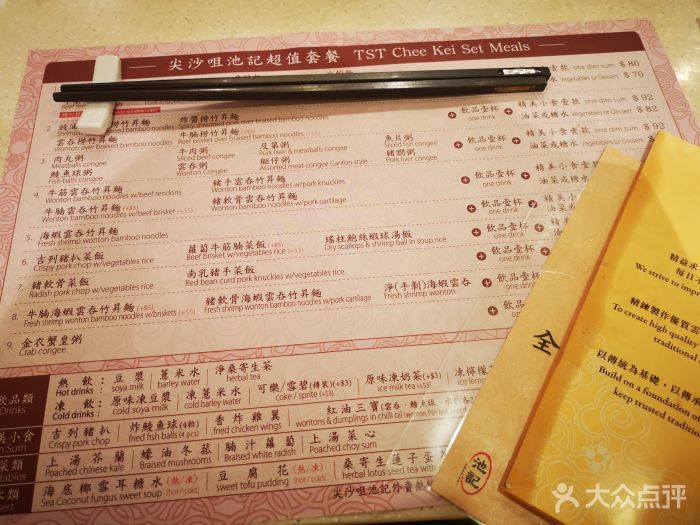 尖沙咀池記超值套餐 TST Chee Kei Set Meals
one dim sum $ 80
油菜或糖水 Vegetables or Dessert $ 70
炸醬撈竹昇麵
Spicy shredded pork over braised bamboo noodles
飲品壹杯
one drink
精美小食壹款 one dim sum $ 92
油菜或糖水 Vegetables or Dessert $ 82
雲吞撈竹昇麵
Wonton over braised bamboo noodles
牛腩撈竹昇麵 (+$5)
Beef brisket over braised bamboo noodles
3. 肉丸粥
Meatballs congee
牛肉粥
Sliced beef congee
及第粥
Pork liver & meatballs congee
魚片粥
Sliced fish congee
鯪魚球粥
Fish balls congee
雲吞粥
Wonton congee
艇仔粥
Assorted meat congee Canton style
豬膶粥
Pork liver congee
飲品壹杯
one drink
精美小食壹款
油菜或糖水
4. 牛筋雲吞竹昇麵
Wonton bamboo noodles w/beef tendons
豬手雲吞竹昇麵
Wonton bamboo noodles w/pork knuckles
牛腩雲吞竹昇麵
Wonton bamboo noodles w/beef brisket (+$5)
豬軟骨雲吞竹昇麵
Wonton bamboo noodles w/pork cartilage
飲品壹杯
one drink
5. 海蝦雲吞竹昇麵
Fresh shrimp wonton bamboo noodles
飲品壹杯
one drink
6. 吉列豬扒菜飯
Crispy pork chop w/vegetables rice
蘿蔔牛筋腩菜飯 (+$5)
Beef brisket w/vegetables rice
瑤柱鮑絲蝦球湯飯
Dry scallops & shrimp ball in soup rice
飲品壹杯
one drink
7. 豬軟骨菜飯
Radish pork chop w/vegetables rice
南乳豬手菜飯
Red bean curd pork knuckles w/vegetables rice
飲品壹杯
one drink
8. 牛腩海蝦雲吞竹昇麵 (+$5)
Fresh shrimp wonton bamboo noodles w/briskets (+$5)
豬軟骨海蝦雲吞竹昇麵
Fresh shrimp wonton bamboo noodles w/pork cartilage
淨(手剁)海蝦雲吞
Fresh shrimp wonton
9. 金衣蟹皇粥
Crab congee
飲品類
Drinks
熱飲:
Hot drinks:
豆漿
soya milk
薏米水
barley water
淨桑寄生茶
herbal tea
凍飲:
Cold drinks:
原味凍豆漿
cold soya milk
凍薏米水
cold barley water
可樂/雪碧(樽裝)(+$3)
coke / sprite (+$3)
原味凍奶茶(+$3)
ice milk tea (+$3)
凍檸檬
ice lemon
美小食
吉列豬扒
Crispy pork chop
炸鯪魚球(4粒)
fried fish balls (4 pcs)
香炸雞翼
fried chicken wings
紅油三寶
wontons & dumplings in chilli oil
上湯芥蘭
Poached chinese kale
蠔油冬菇
Braised mushrooms
腩汁蘿蔔
Braised white radish
上湯菜心
Poached choy sum
海底椰雪耳糖水 (熱/凍)
Sea Coconut fungus sweet soup (hot / cold)
豆腐花 (熱/凍)
sweet tofu pudding (hot / cold)
桑寄生蓮子蛋
herbal lotus seed tea with
尖沙咀池記外賣熱
全
池記
精益求
每日不
We strive to impr
精鍊製作優質雲
To create high quality
traditional
以傳統為基礎，以傳承
Build on a foundation of
keep trusted tradition
大众点评